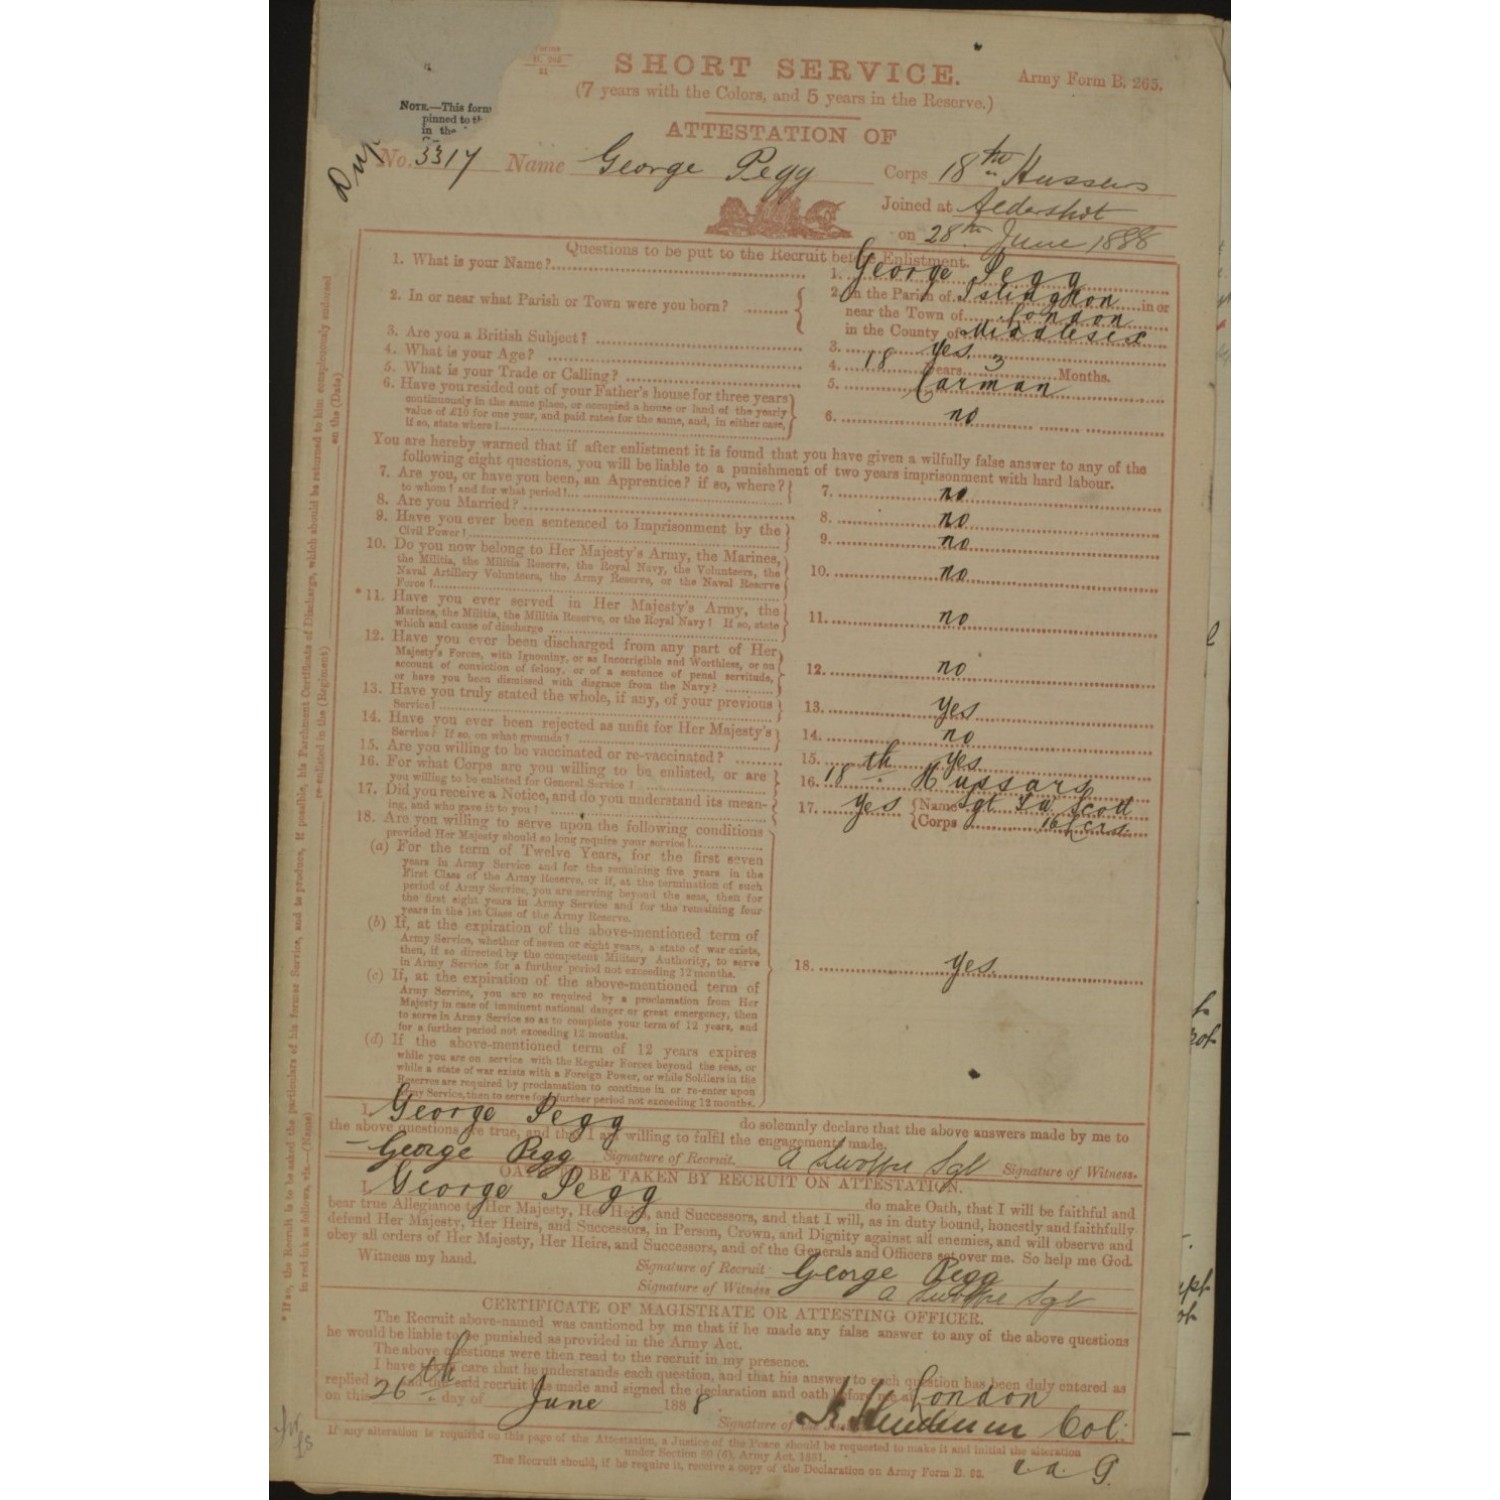 SHORT SERVICE.
Army Form B. 265.
(7 years with the Colors, and 5 years in the Reserve.)
NOTE.—This form
pinned to th
in the
ATTESTATION OF
No. 3317 Name George Pegg Corps 18th Hussars
Joined at Aldershot
on 28th June 1888
Questions to be put to the Recruit before Enlistment.
1. What is your Name? 1. George Pegg
2. In or near what Parish or Town were you born? 2. In the Parish of Islington in or
near the Town of London
in the County of Middlesex
3. Are you a British Subject? 3. Yes.
4. What is your Age? 4. 18 Years 3 Months.
5. What is your Trade or Calling? 5. Carman
6. Have you resided out of your Father's house for three years
continuously in the same place, or occupied a house or land of the yearly
value of £10 for one year, and paid rates for the same, and, in either case,
if so, state where? 6. no
You are hereby warned that if after enlistment it is found that you have given a wilfully false answer to any of the
following eight questions, you will be liable to a punishment of two years imprisonment with hard labour.
7. Are you, or have you been, an Apprentice? if so, where?
to whom? and for what period? 7. no
8. Are you Married? 8. no
9. Have you ever been sentenced to Imprisonment by the
Civil Power? 9. no
10. Do you now belong to Her Majesty's Army, the Marines,
the Militia, the Militia Reserve, the Royal Navy, the Volunteers, the
Naval Artillery Volunteers, the Army Reserve, or the Naval Reserve
Force? 10. no
* 11. Have you ever served in Her Majesty's Army, the
Marines, the Militia, the Militia Reserve, or the Royal Navy? If so, state
which and cause of discharge 11. no
12. Have you ever been discharged from any part of Her
Majesty's Forces, with Ignominy, or as Incorrigible and Worthless, or on
account of conviction of felony, or of a sentence of penal servitude,
or have you been dismissed with disgrace from the Navy? 12. no
13. Have you truly stated the whole, if any, of your previous
Service? 13. Yes
14. Have you ever been rejected as unfit for Her Majesty's
Service? If so, on what grounds? 14. no
15. Are you willing to be vaccinated or re-vaccinated? 15. Yes
16. For what Corps are you willing to be enlisted, or are
you willing to be enlisted for General Service? 16. 18th Hussars
17. Did you receive a Notice, and do you understand its mean-
ing, and who gave it to you? 17. Yes Name Sgt Scott
Corps
18. Are you willing to serve upon the following conditions
provided Her Majesty should so long require your service?
(a) For the term of Twelve Years, for the first seven
years in Army Service and for the remaining five years in the
First Class of the Army Reserve, or if, at the termination of such
period of Army Service, you are serving beyond the seas, then for
the first eight years in Army Service and for the remaining four
years in the 1st Class of the Army Reserve.
(b) If, at the expiration of the above-mentioned term of
Army Service, whether of seven or eight years, a state of war exists,
then, if so directed by the competent Military Authority, to serve
in Army Service for a further period not exceeding 12 months. 18. Yes.
(c) If, at the expiration of the above-mentioned term of
Army Service, you are so required by a proclamation from Her
Majesty in case of imminent national danger or great emergency, then
to serve in Army Service so as to complete your term of 12 years, and
for a further period not exceeding 12 months.
(d) If the above-mentioned term of 12 years expires
while you are on service with the Regular Forces beyond the seas, or
while a state of war exists with a Foreign Power, or while Soldiers in the
Reserves are required by proclamation to continue in or re-enter upon
Army Service, then to serve for a further period not exceeding 12 months.
I, George Pegg do solemnly declare that the above answers made by me to
the above questions are true, and that I am willing to fulfil the engagements made.
George Pegg Signature of Recruit. Sgt Signature of Witness.
OATH TO BE TAKEN BY RECRUIT ON ATTESTATION.
I, George Pegg do make Oath, that I will be faithful and
bear true Allegiance to Her Majesty, Her Heirs, and Successors, and that I will, as in duty bound, honestly and faithfully
defend Her Majesty, Her Heirs, and Successors, in Person, Crown, and Dignity against all enemies, and will observe and
obey all orders of Her Majesty, Her Heirs, and Successors, and of the Generals and Officers set over me. So help me God.
Witness my hand.
Signature of Recruit George Pegg
Signature of Witness Sgt
CERTIFICATE OF MAGISTRATE OR ATTESTING OFFICER.
The Recruit above-named was cautioned by me that if he made any false answer to any of the above questions
he would be liable to be punished as provided in the Army Act.
The above questions were then read to the recruit in my presence.
I have taken care that he understands each question, and that his answer to each question has been duly entered as
replied to, and the said recruit has made and signed the declaration and oath before me at London
on this 26th day of June 1888.
Signature of the Col.
If any alteration is required on this page of the Attestation, a Justice of the Peace should be requested to make it and initial the alteration
under Section 80 (6), Army Act, 1881.
The Recruit should, if he require it, receive a copy of the Declaration on Army Form B.
* If so, the Recruit is to be asked the particulars of his former Service, and to produce, if possible, his Parchment Certificate of Discharge, which should be returned to him conspicuously endorsed
in red ink as follows, viz.—(Name) re-enlisted in the (Regiment) on the (Date)